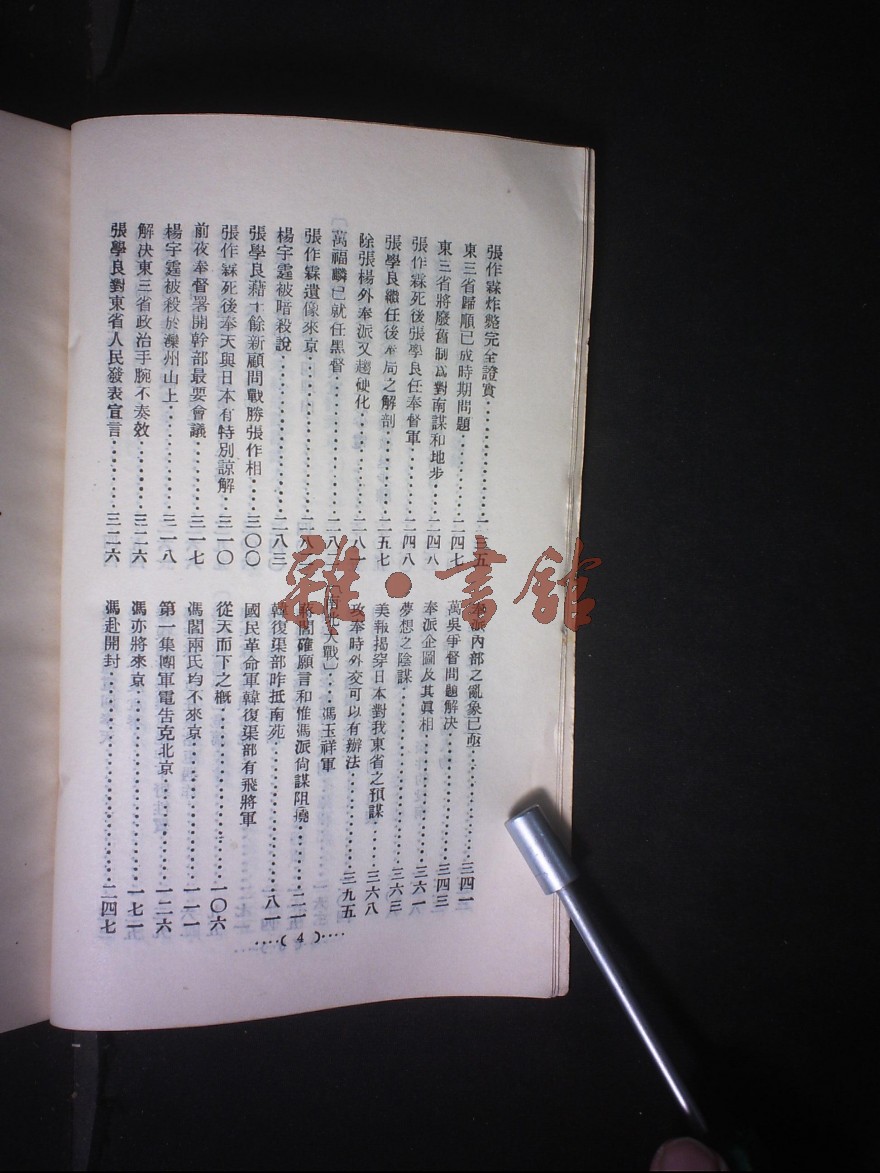 張作霖炸斃完全證實………一三五
東三省歸順已成時期問題………二四七
東三省將廢舊制爲對南謀和地步……二四八
張作霖死後張學良任奉督軍………二四八
張學良繼任後奉局之解剖………二五七
除張楊外奉派又趨硬化………二八一
萬福麟已就任黑督………二八二
張作霖遺像來京………二八二
楊宇霆被暗殺說………二八三
張學良藉十餘新顧問戰勝張作相……三〇〇
張作霖死後奉天與日本有特別諒解…三一〇
前夜奉督署開幹部最要會議………三一七
楊宇霆被殺於灤州山上………三一八
解決東三省政治手腕不奏效………三二六
張學良對東省人民發表宣言………三二六
奉派內部之亂象已亟………三四一
萬吳爭督問題解決………三四三
奉派企圖及其眞相………三六一
夢想之陰謀………三六三
美報揭穿日本對我東省之預謀……三六八
攻奉時外交可以有辦法………三九五
「南北大戰」……馮玉祥軍
蔣閻確願言和惟馮派尙謀阻撓………二一
韓復渠部昨抵南苑………八一
國民革命軍韓復渠部有飛將軍
從天而下之概………一〇六
馮閻兩氏均不來京………一一一
第一集團軍電告克北京………一二六
馮亦將來京………一七一
馮赴開封………二四七
…( 4 )…
雜·書館